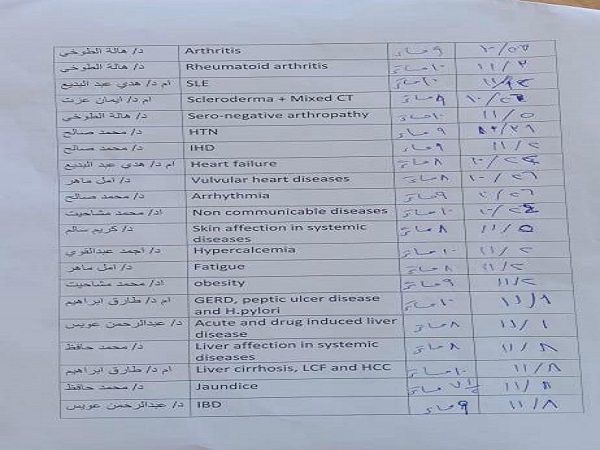 د/ هالة الطوخي Arthritis ٩ مساءً
د/ هالة الطوخي Rheumatoid arthritis ١٠ مساءً ١١/٢
ام د/ هدي عبد البديع SLE ١٠ مساءً
ام د/ ايمان عزت Scleroderma + Mixed CT ٨ مساءً
د/ هالة الطوخي Sero-negative arthropathy ١٠ مساءً ١١/٥
د/ محمد صالح HTN ٩ مساءً
د/ محمد صالح IHD ٩ مساءً ١١/٢
ام د/ هدي عبد البديع Heart failure ٨ مساءً
د/ امل ماهر Vulvular heart diseases ٨ مساءً ١٠/٢٦
د/ محمد صالح Arrhythmia ٩ مساءً
اد/ محمد مشاحيت Non communicable diseases ١٠ مساءً
د/ كريم سالم Skin affection in systemic ٨ مساءً ١١/٥
diseases
د/ احمد عبدالقوي Hypercalcemia ١٠ مساءً ١١/٢
د/ امل ماهر Fatigue ٨ مساءً ١١/٢
اد/ محمد مشاحيت obesity ٩ مساءً ١١/٢
ام د/ طارق ابراهيم GERD, peptic ulcer disease ١٠ مساءً ١١/١
and H.pylori
د/ عبدالرحمن عويس Acute and drug induced liver ٨ مساءً ١١/١
disease
د/ محمد حافظ Liver affection in systemic ٨ مساءً ١١/٨
diseases
ام د/ طارق ابراهيم Liver cirrhosis, LCF and HCC ١٠ مساءً ١١/٨
د/ محمد حافظ Jaundice مساءً ١١/٨
د/ عبدالرحمن عويس IBD ٩ مساءً ١١/٨